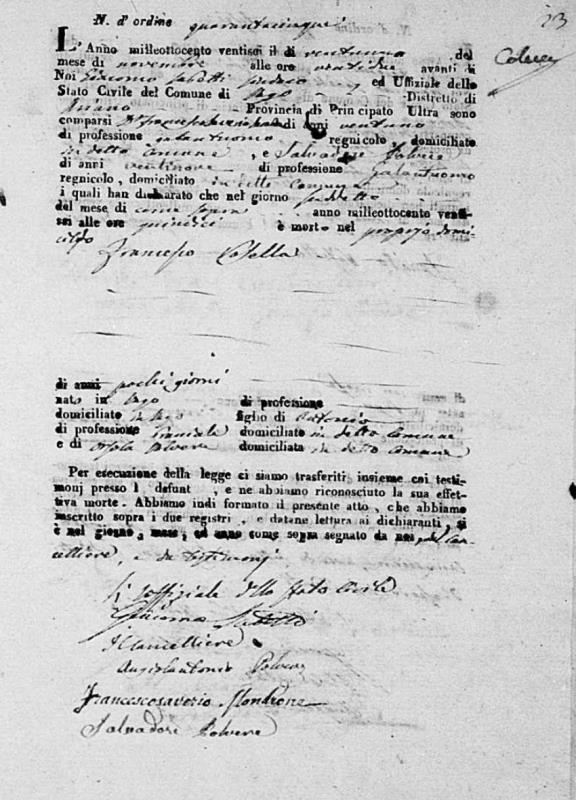 N. d'ordine quarantacinque
23
L'Anno milleottocento ventisei il dì ventuno del
mese di novembre alle ore ventidue avanti di
Noi Giacomo sindaco ed Uffiziale dello
Stato Civile del Comune di Pago Distretto di
Ariano Provincia di Principato Ultra sono
comparsi di anni ventuno
di professione galantuomo regnicolo, domiciliato
in detto Comune, e Salvadore Polvere
di anni ventinove di professione galantuomo
regnicolo, domiciliato in detto Comune
i quali han dichiarato che nel giorno suddetto
del mese di come sopra anno milleottocento venti-
sei alle ore quindici è morto nel proprio domi-
cilio
Francesco Colella
di anni pochi giorni
nato in Pago di professione
domiciliato in Pago figlio di Antonio
di professione domiciliato in detto Comune
e di Orsola Polvere domiciliata in detto Comune
Per esecuzione della legge ci siamo trasferiti insieme coi testi-
monj presso l defunt , e ne abbiamo riconosciuto la sua effet-
tiva morte. Abbiamo indi formato il presente atto, che abbiamo
inscritto sopra i due registri, e datane lettura ai dichiaranti, si
è nel giorno, mese, ed anno come sopra segnato da noi, dal Can-
celliere, e da testimonj
L'uffiziale dello stato Civile
Giacomo
Il Cancelliere
Angiolantonio Polvere
Francescosaverio Mondrone
Salvadore Polvere